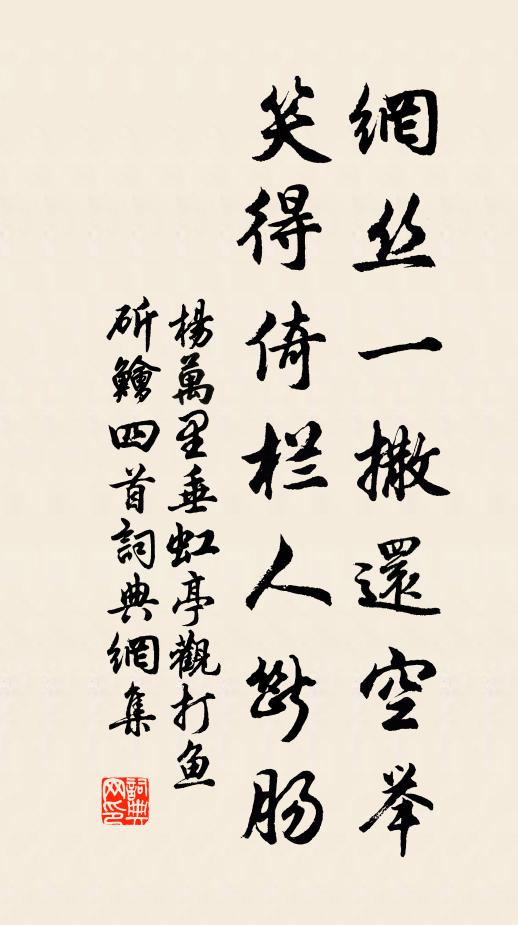 網丝一撒還空举
笑得倚栏人断肠
楊萬里垂虹亭觀打魚
斫鱠四首詞典網集
詞典网印